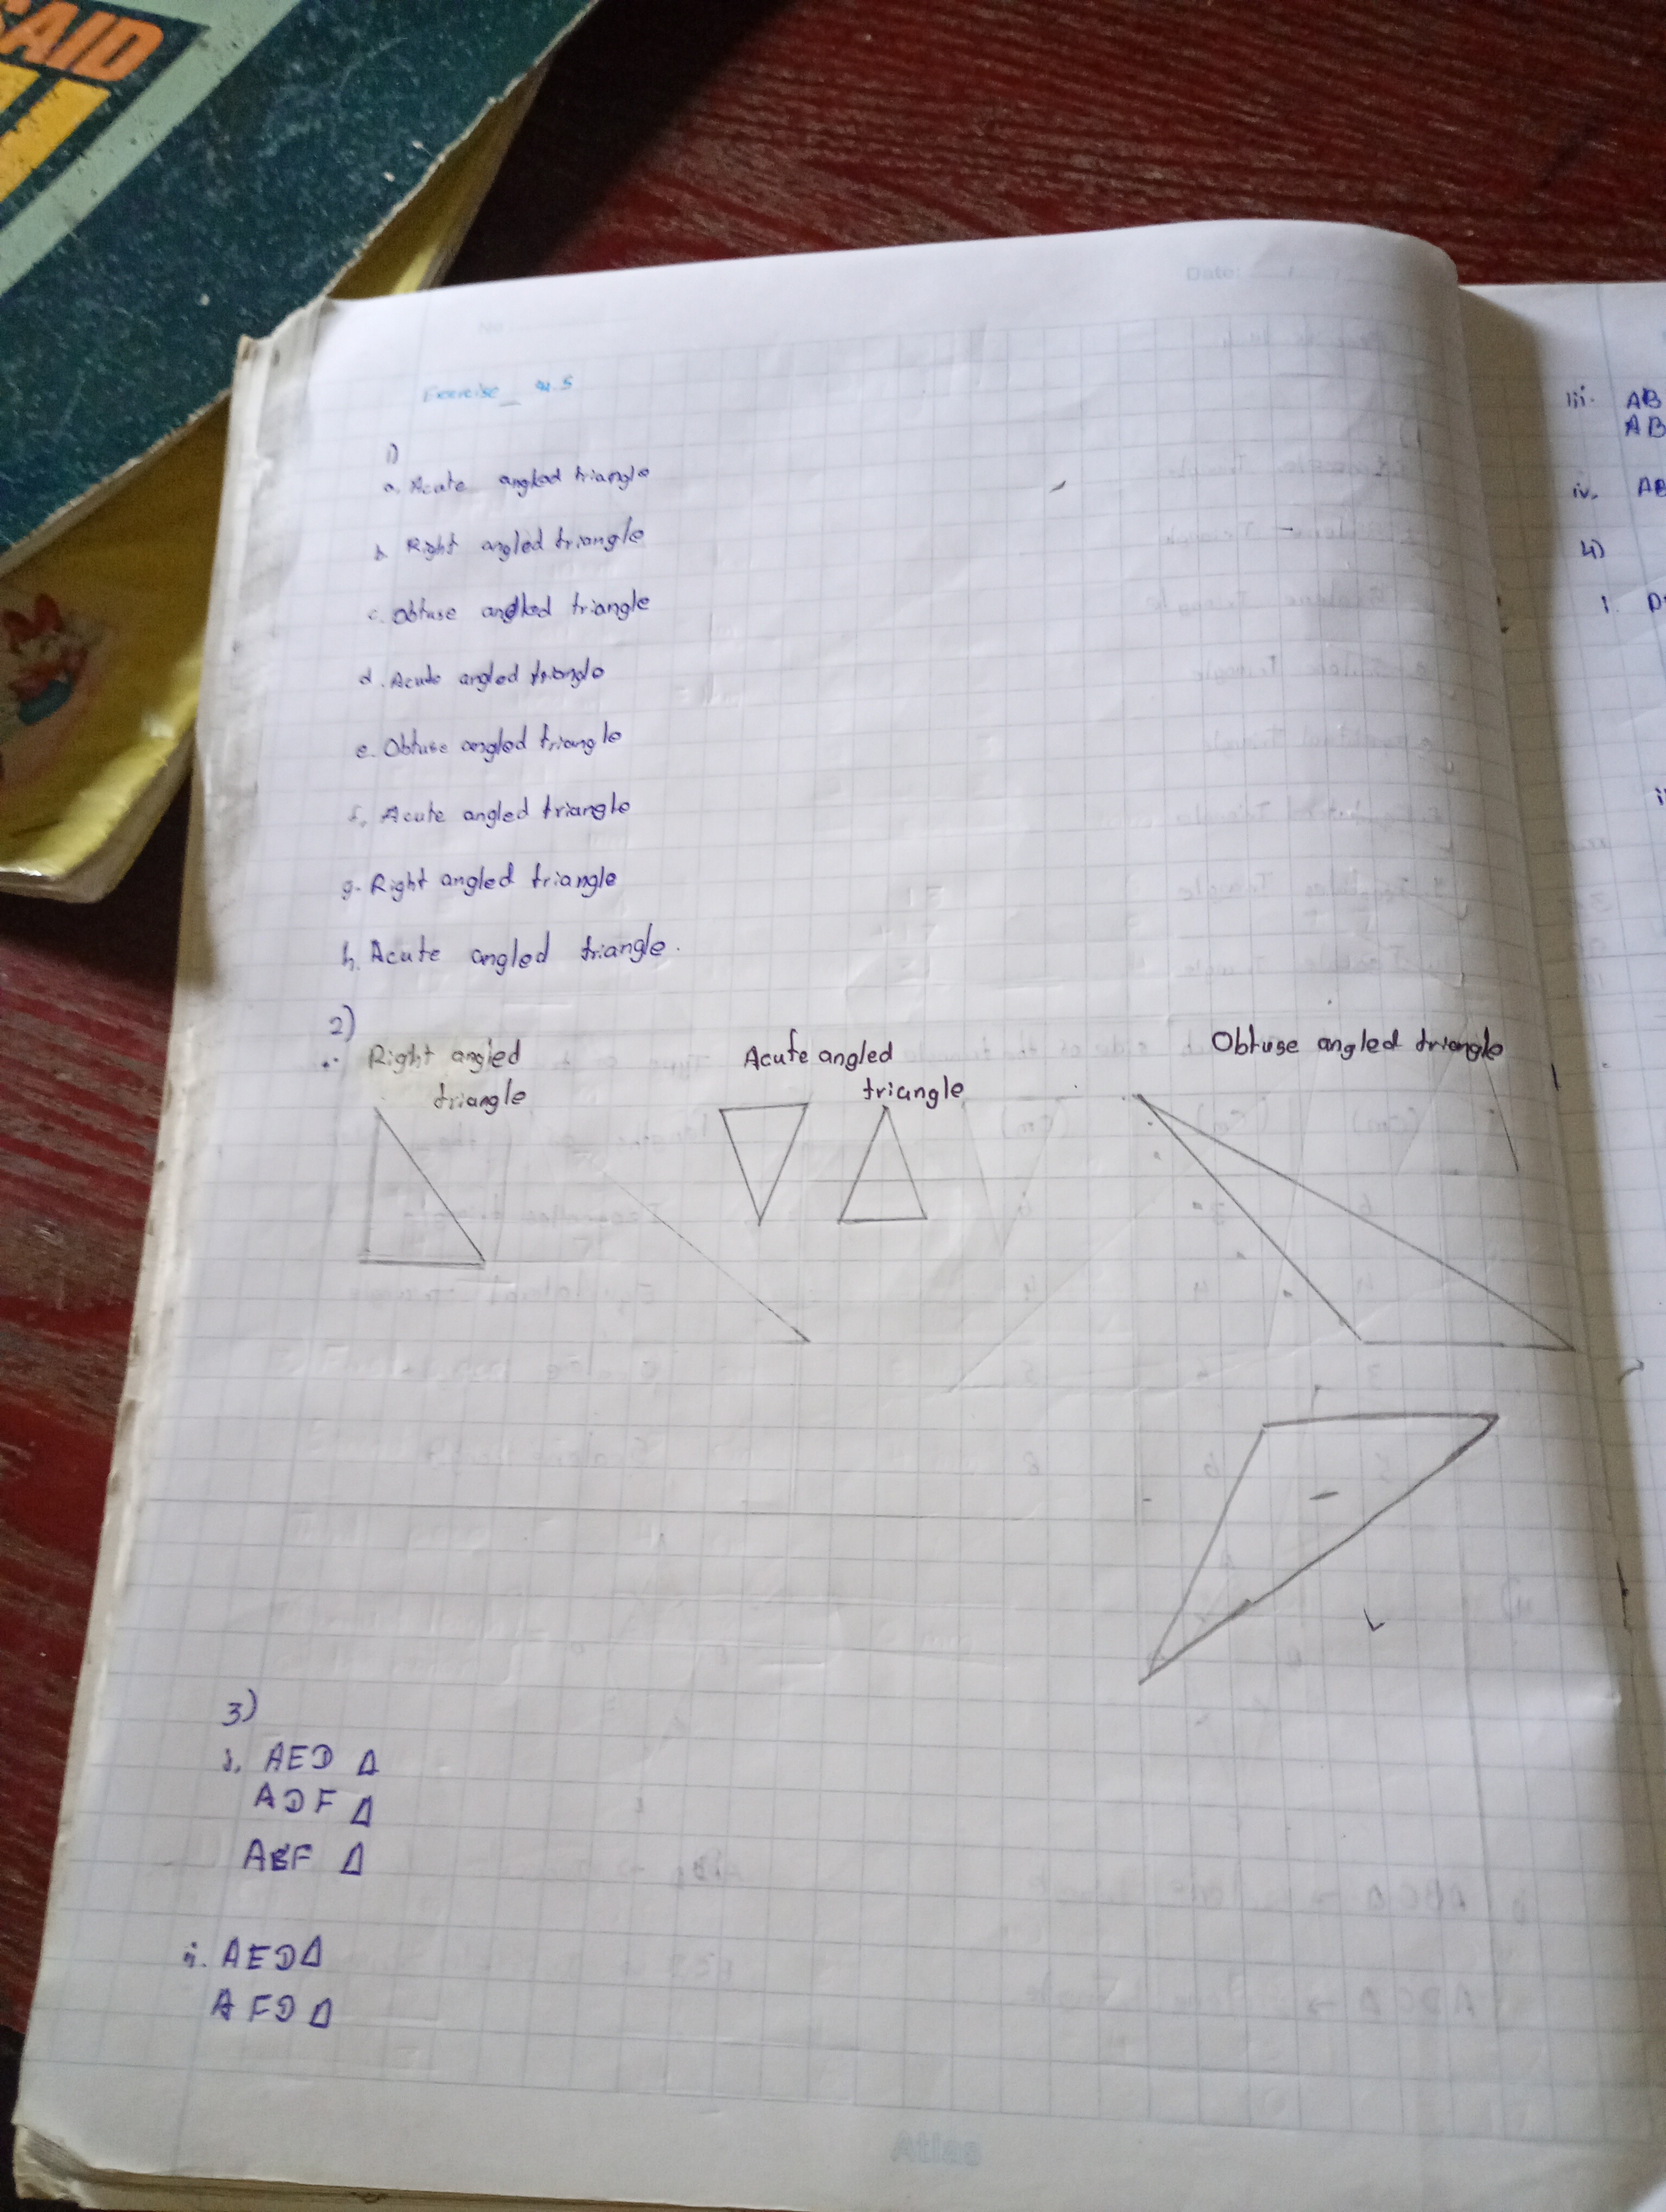 SAID
No:
Date:
Exercise _ 4.5
1)
a. Acute angled triangle
b. Right angled triangle
c. Obtuse angled triangle
d. Acute angled triangle
e. Obtuse angled triangle
f. Acute angled triangle
g. Right angled triangle
h. Acute angled triangle.
2)
Right angled
triangle
Acute angled
triangle
Obtuse angled triangle
3)
i. AED Δ
ADF Δ
ABF Δ
ii. AED Δ
AFD Δ
iii. AB
AB
iv. AB
4)
i.
Atlas